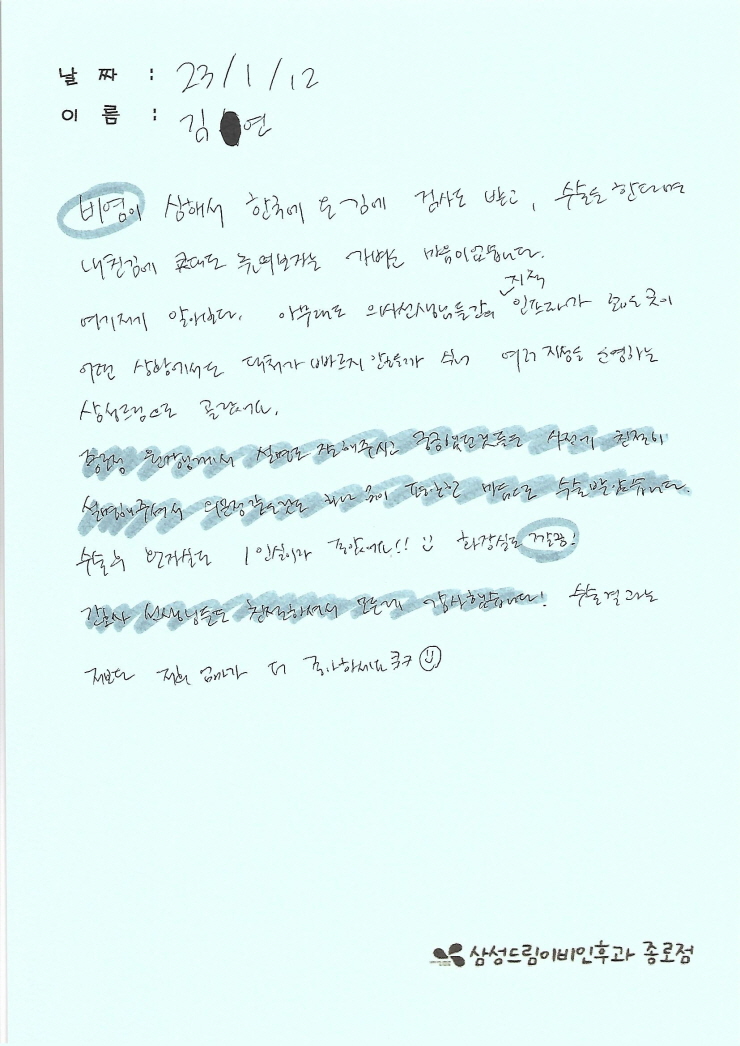 날 짜 : 23/1/12
이 름 : 김 연
비염이 심해서 한국에 온김에 검사도 받고, 수술을 한다면
내친김에 코대도 높여보자는 가벼운 마음이었습니다.
여기저기 알아보다, 아무래도 의사선생님들간의 지적 인프라가 있는 곳이
어떤 상황에서든 대처가 빠르지 않을까 싶어 여러 지점을 운영하는
삼성드림으로 골랐어요.
원장님께서 설명도 잘해주시고 궁금했던것들을 사전에 친절히
설명해주셔서 의문점같은것도 하나 없이 편안한 마음으로 수술받았습니다.
수술후 환자실도 1인실이라 좋았어요!! 화장실도 깔끔!
간호사 선생님들도 친절하셔서 모든게 감사했습니다! 수술결과는
저보다 저희 엄마가 더 좋아하세요ㅋㅋ
삼성드림이비인후과 종로점